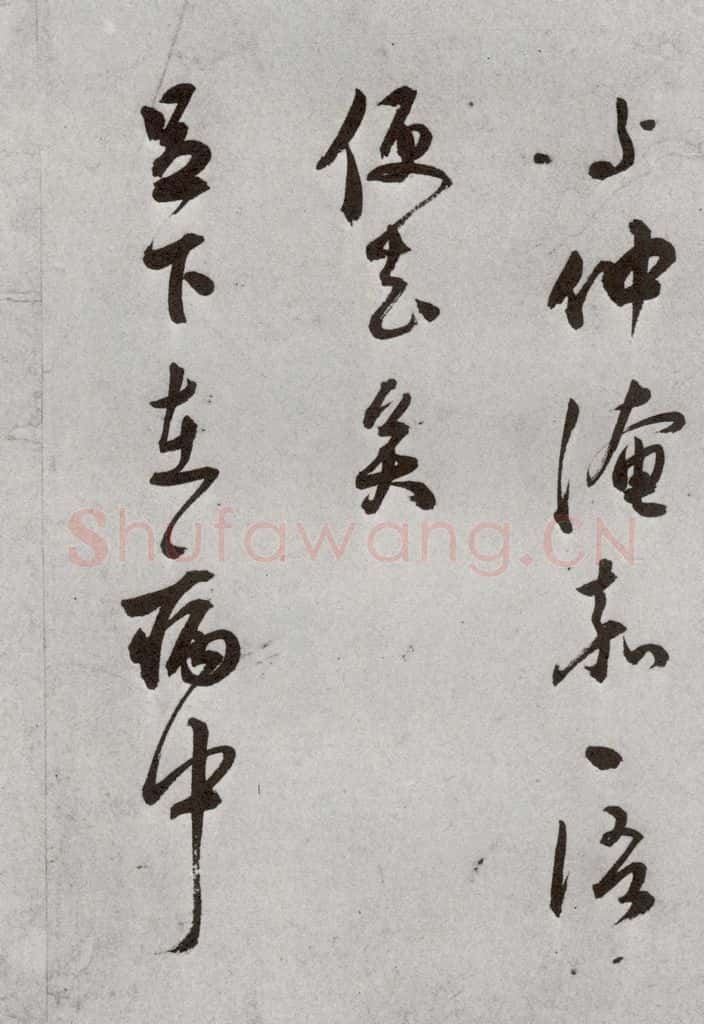 与仲淹一语
便去矣
下在病中
Shufawang.CN